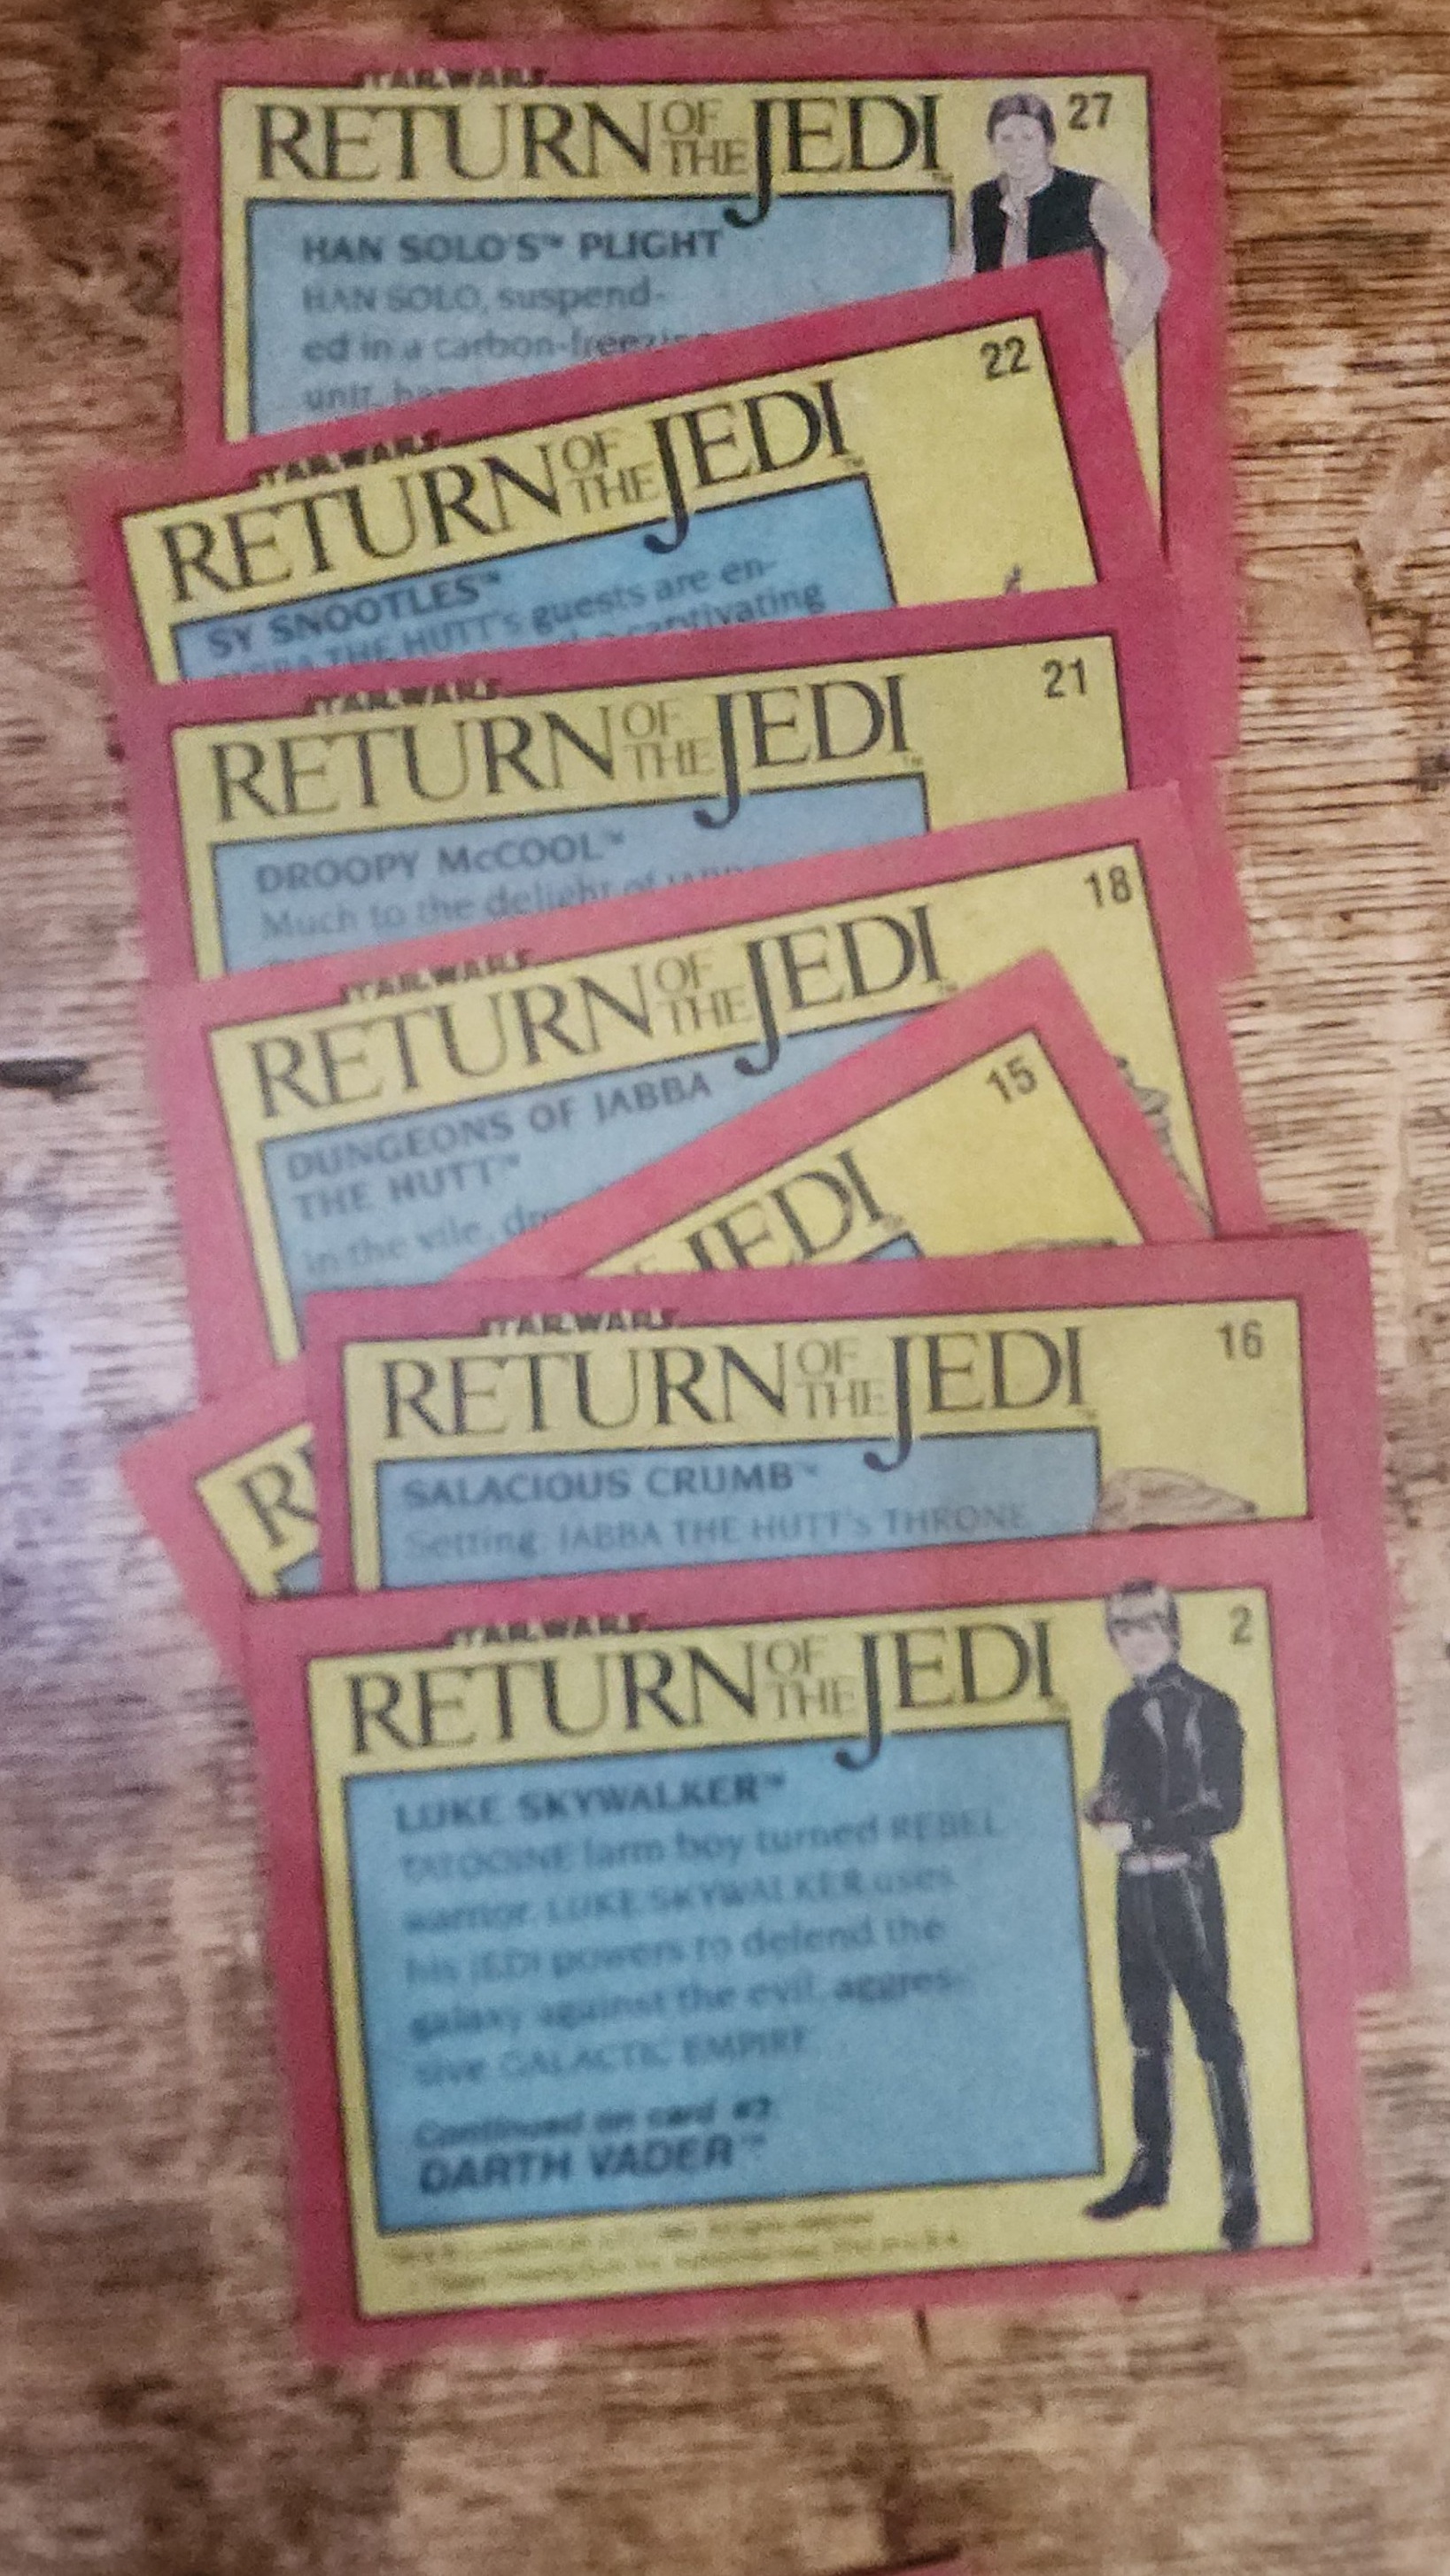 STAR WARS
RETURN OF THE JEDI™
27
HAN SOLO'S™ PLIGHT
HAN SOLO, suspend-
ed in a carbon-freezing
unit,
STAR WARS
RETURN OF THE JEDI™
22
SY SNOOTLES™
JABBA THE HUTT's guests are en-
captivating
STAR WARS
RETURN OF THE JEDI™
21
DROOPY McCOOL™
Much to the delight of
STAR WARS
RETURN OF THE JEDI™
18
DUNGEONS OF JABBA
THE HUTT™
In the vile,
15
JEDI™
STAR WARS
RETURN OF THE JEDI™
16
SALACIOUS CRUMB™
Setting: JABBA THE HUTT's THRONE
STAR WARS
RETURN OF THE JEDI™
2
LUKE SKYWALKER™
TATOOINE farm boy turned REBEL
warrior, LUKE SKYWALKER uses
his JEDI powers to defend the
galaxy against the evil, aggres-
sive GALACTIC EMPIRE.
Continued on card #3:
DARTH VADER™